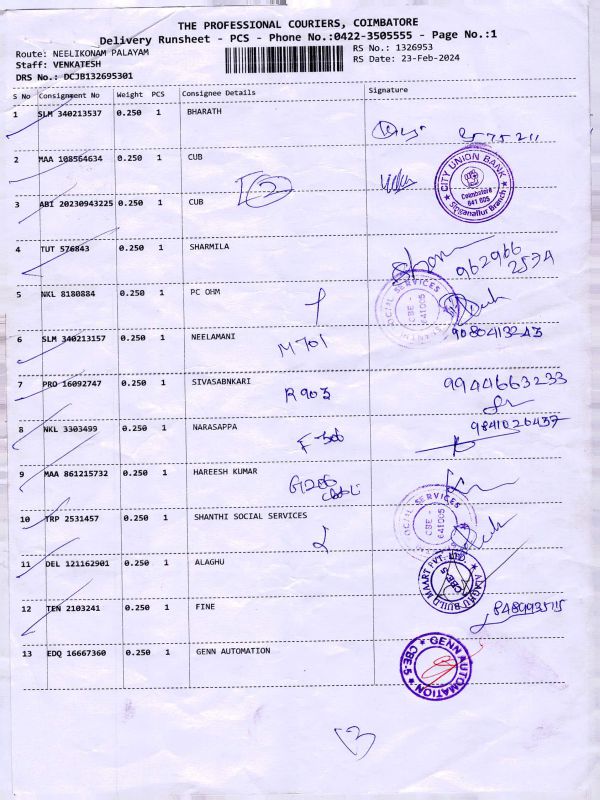 THE PROFESSIONAL COURIERS, COIMBATORE
Delivery Runsheet - PCS - Phone No.:0422-3505555 - Page No.:1
Route: NEELIKONAM PALAYAM
RS No.: 1326953
Staff: VENKATESH
RS Date: 23-Feb-2024
DRS No.: DCJB132695301
S No Consignment No Weight PCS Consignee Details Signature
1 SLM 340213537 0.250 1 BHARATH
2 MAA 108564634 0.250 1 CUB
CITY UNION BANK
Coimbatore
641 005
Singanallur Branch
3 ABI 20230943225 0.250 1 CUB
4 TUT 576843 0.250 1 SHARMILA
962966
2574
5 NKL 8180884 0.250 1 PC OHM
SOCIAL SERVICES
CBE -
641005
6 SLM 340213157 0.250 1 NEELAMANI
M701
9080413243
7 PRO 16092747 0.250 1 SIVASABNKARI
R903
9944663233
8 NKL 3303499 0.250 1 NARASAPPA
9841026437
9 MAA 861215732 0.250 1 HAREESH KUMAR
G206
10 TRP 2531457 0.250 1 SHANTHI SOCIAL SERVICES
SOCIAL SERVICES
CBE -
641005
11 DEL 121162901 0.250 1 ALAGHU
ALAGHU BUILD MAART PVT. LTD.
CBE-5
12 TEN 2103241 0.250 1 FINE
13 EDQ 16667360 0.250 1 GENN AUTOMATION
GENN AUTOMATION
CBE-5
13